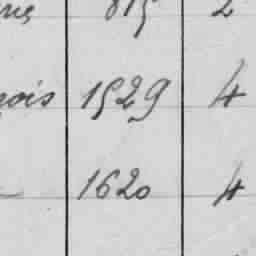 815 2
nois 1529 4
1620 4